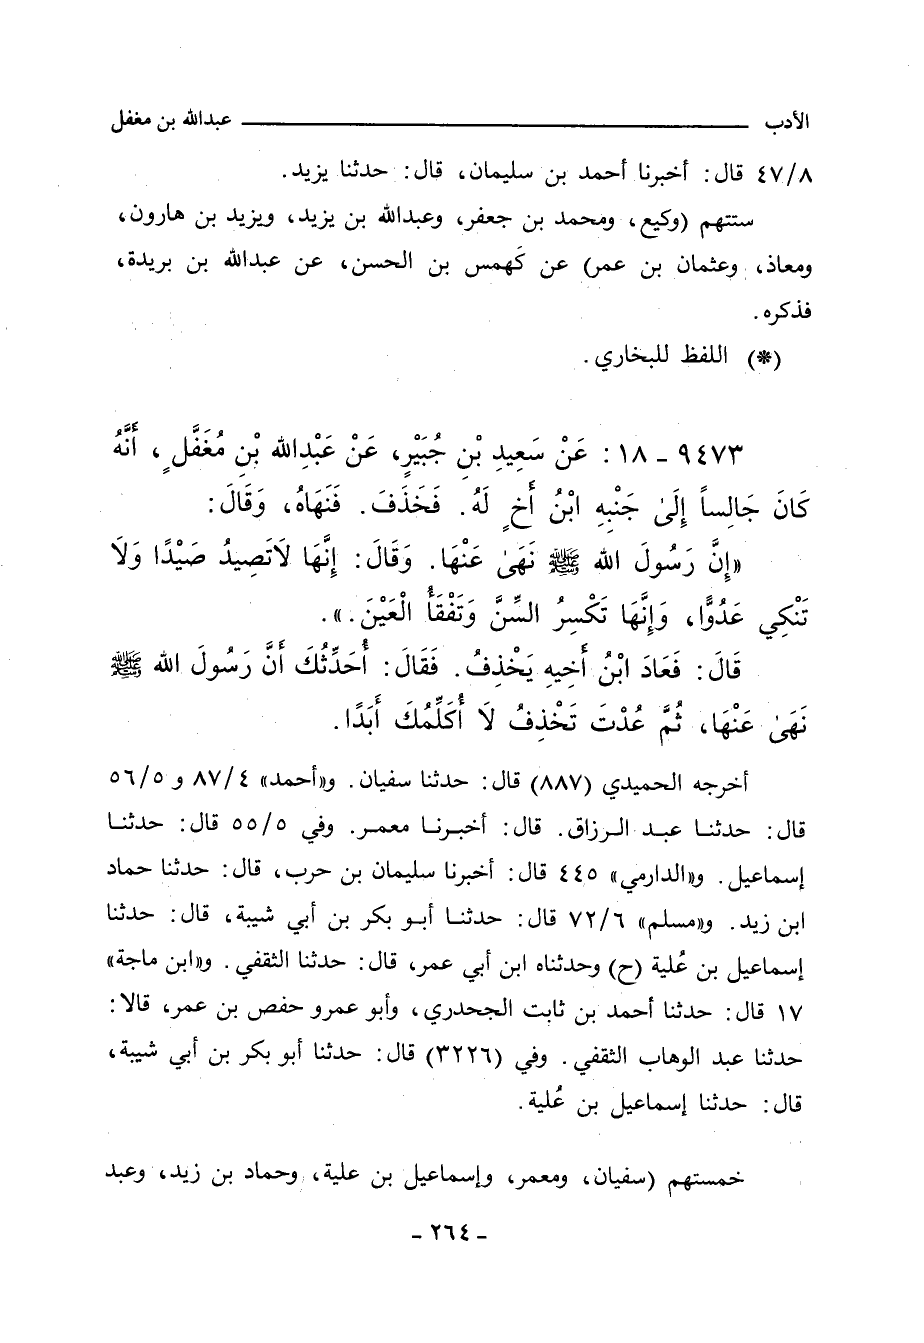 الأدب ــــــــــــــــــــــــــــــــــــــــــــ عبدالله بن مغفل
٤٧/٨ قال: أخبرنا أحمد بن سليمان، قال: حدثنا يزيد.
ستتهم (وكيع، ومحمد بن جعفر، وعبدالله بن يزيد، ويزيد بن هارون،
ومعاذ، وعثمان بن عمر) عن كَهمس بن الحسن، عن عبدالله بن بريدة،
فذكره.
(*) اللفظ للبخاري.
٩٤٧٣ - ١٨: عَنْ سَعِيدِ بْنِ جُبَيْرٍ، عَنْ عَبْدِاللهِ بْنِ مُغَفَّلٍ، أَنَّهُ
كَانَ جَالِساً إِلَىٰ جَنْبِهِ ابْنُ أَخٍ لَهُ. فَخَذَفَ. فَنَهَاهُ، وَقَالَ:
«إِنَّ رَسُولَ اللهِ ﷺ نَهَىٰ عَنْهَا. وَقَالَ: إِنَّهَا لَاتَصِيدُ صَيْدًا وَلَا
تَنْكِي عَدُوًّا، وَإِنَّهَا تَكْسِرُ السِّنَّ وَتَفْقَأُ الْعَيْنَ.».
قَالَ: فَعَادَ ابْنُ أَخِيهِ يَخْذِفُ. فَقَالَ: أُحَدِّثُكَ أَنَّ رَسُولَ اللهِ ﷺ
نَهَىٰ عَنْهَا، ثُمَّ عُدْتَ تَخْذِفُ لَا أُكَلِّمُكَ أَبَدًا.
أخرجه الحميدي (٨٨٧) قال: حدثنا سفيان. و«أحمد» ٨٧/٤ و ٥٦/٥
قال: حدثنا عبد الرزاق. قال: أخبرنا معمر. وفي ٥٥/٥ قال: حدثنا
إسماعيل. و«الدارمي» ٤٤٥ قال: أخبرنا سليمان بن حرب، قال: حدثنا حماد
ابن زيد. و«مسلم» ٧٢/٦ قال: حدثنا أبو بكر بن أبي شيبة، قال: حدثنا
إسماعيل بن عُلية (ح) وحدثناه ابن أبي عمر، قال: حدثنا الثقفي. و«ابن ماجة»
١٧ قال: حدثنا أحمد بن ثابت الجحدري، وأبو عمرو حفص بن عمر، قالا:
حدثنا عبد الوهاب الثقفي. وفي (٣٢٢٦) قال: حدثنا أبو بكر بن أبي شيبة،
قال: حدثنا إسماعيل بن عُلية.
خمستهم (سفيان، ومعمر، وإسماعيل بن علية، وحماد بن زيد، وعبد
- ٢٦٤ -